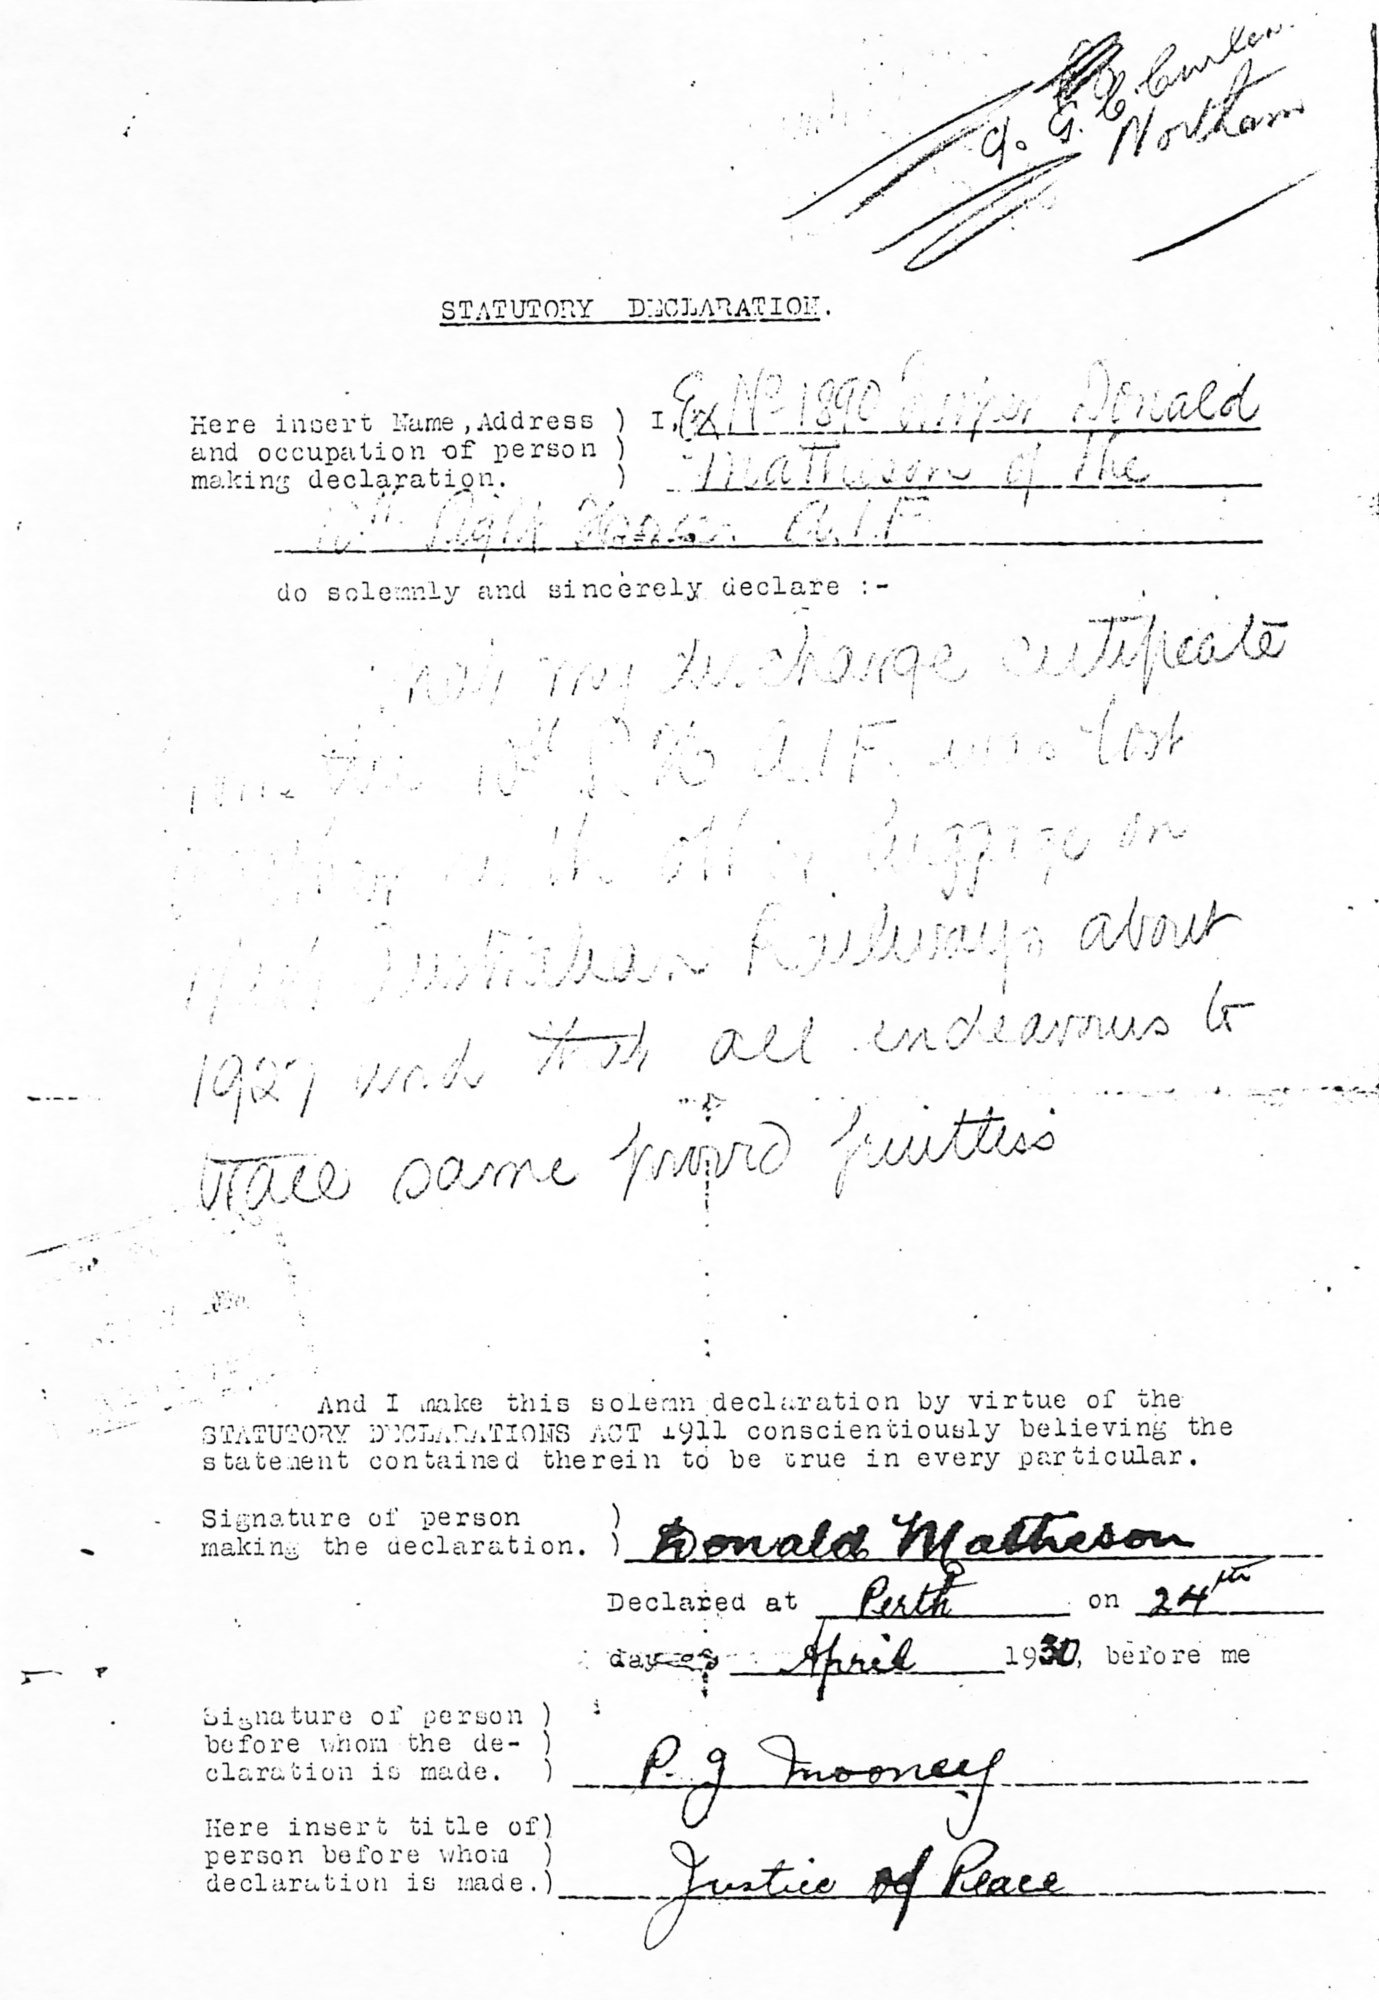 Northam
STATUTORY DECLARATION.
Here insert Name, Address ) I, Ex No 1890 Donald
and occupation of person )
making declaration. ) Matheson of the
10th Light Horse A.I.F
do solemnly and sincerely declare :-
that my discharge certificate
from the 10th L H A.I.F. was lost
together with other luggage on
West Australian Railways about
1927 and that all endeavours to
trace same proved fruitless
And I make this solemn declaration by virtue of the
STATUTORY DECLARATIONS ACT 1911 conscientiously believing the
statement contained therein to be true in every particular.
Signature of person )
making the declaration. ) Donald Matheson
Declared at Perth on 24th
day of April 1930, before me
Signature of person )
before whom the de- )
claration is made. ) P. J Mooney
Here insert title of)
person before whom )
declaration is made.) Justice of Peace